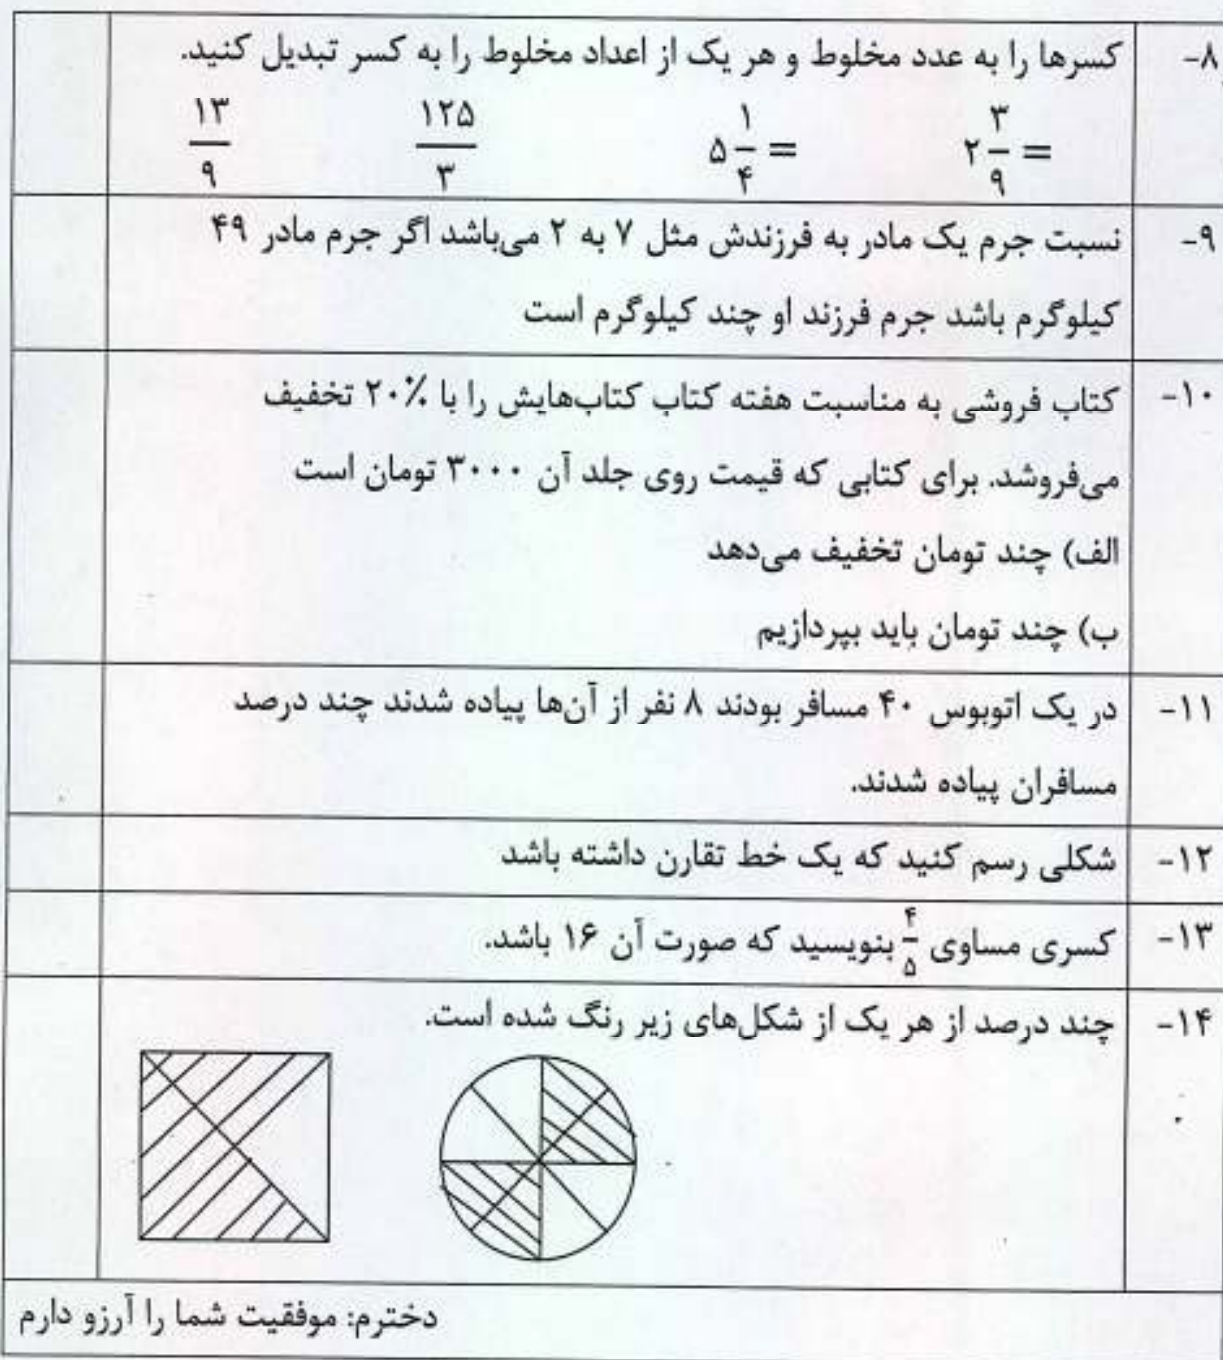 ۸- کسرها را به عدد مخلوط و هر یک از اعداد مخلوط را به کسر تبدیل کنید.
۲ ۳/۹ = ۵ ۱/۴ = ۱۲۵/۳ ۱۳/۹
۹- نسبت جرم یک مادر به فرزندش مثل ۷ به ۲ می‌باشد اگر جرم مادر ۴۹
کیلوگرم باشد جرم فرزند او چند کیلوگرم است
۱۰- کتاب فروشی به مناسبت هفته کتاب کتاب‌هایش را با ۲۰٪ تخفیف
می‌فروشد. برای کتابی که قیمت روی جلد آن ۳۰۰۰ تومان است
الف) چند تومان تخفیف می‌دهد
ب) چند تومان باید بپردازیم
۱۱- در یک اتوبوس ۴۰ مسافر بودند ۸ نفر از آن‌ها پیاده شدند چند درصد
مسافران پیاده شدند.
۱۲- شکلی رسم کنید که یک خط تقارن داشته باشد
۱۳- کسری مساوی ۴/۵ بنویسید که صورت آن ۱۶ باشد.
۱۴- چند درصد از هر یک از شکل‌های زیر رنگ شده است.
دخترم: موفقیت شما را آرزو دارم